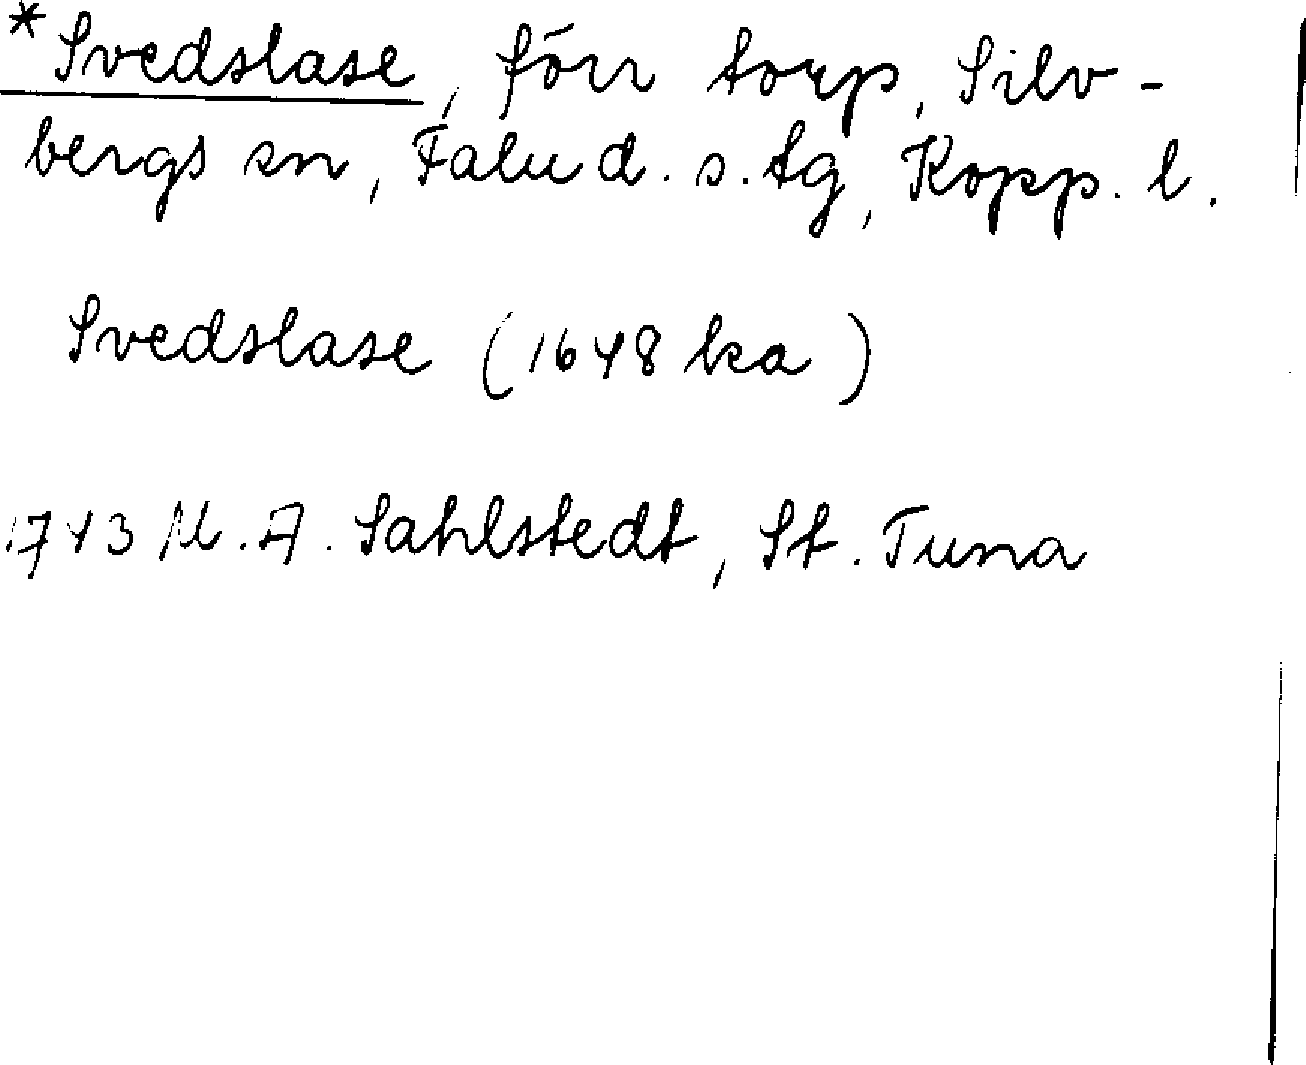 *Svedslase, förr torp, Silv-
bergs sn, Falu d. s. tg, Kopp. l.
Svedslase (1648 ka)
1743 M. A. Sahlstedt, St. Tuna